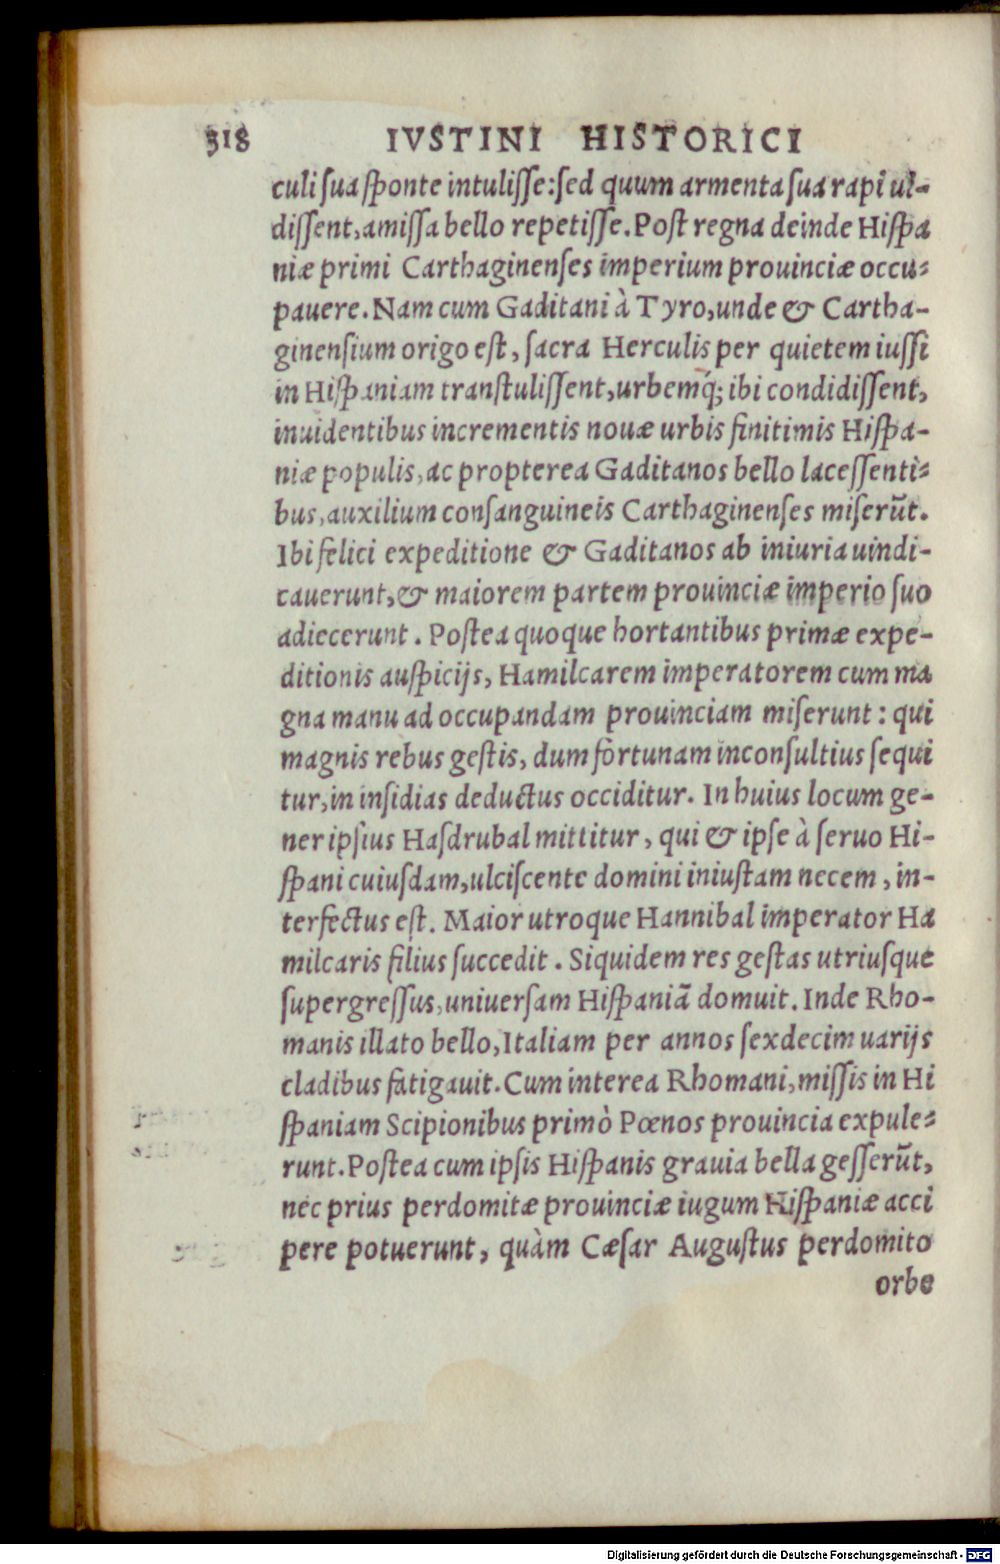 318 IVSTINI HISTORICI
culi sua sponte intulisse:sed quum armenta sua rapi ui-
dissent,amissa bello repetisse.Post regna deinde Hispa
niæ primi Carthaginenses imperium prouinciæ occu-
pauere.Nam cum Gaditani à Tyro,unde & Cartha-
ginensium origo est, sacra Herculis per quietem iussi
in Hispaniam transtulissent,urbemq́; ibi condidissent,
inuidentibus incrementis nouæ urbis finitimis Hispa-
niæ populis,ac propterea Gaditanos bello lacessenti-
bus,auxilium consanguineis Carthaginenses miserũt.
Ibi felici expeditione & Gaditanos ab iniuria uindi-
cauerunt,& maiorem partem prouinciæ imperio suo
adiecerunt. Postea quoque hortantibus primæ expe-
ditionis auspicijs, Hamilcarem imperatorem cum ma
gna manu ad occupandam prouinciam miserunt: qui
magnis rebus gestis, dum fortunam inconsultius sequi
tur,in insidias deductus occiditur. In huius locum ge-
ner ipsius Hasdrubal mittitur, qui & ipse à seruo Hi-
spani cuiusdam,ulciscente domini iniustam necem, in-
terfectus est. Maior utroque Hannibal imperator Ha
milcaris filius succedit. Siquidem res gestas utriusque
supergressus,uniuersam Hispaniã domuit. Inde Rho-
manis illato bello,Italiam per annos sexdecim uarijs
cladibus fatigauit.Cum interea Rhomani,missis in Hi
spaniam Scipionibus primò Pœnos prouincia expule-
runt.Postea cum ipsis Hispanis grauia bella gesserũt,
nec prius perdomitæ prouinciæ iugum Hispaniæ acci
pere potuerunt, quàm Cæsar Augustus perdomito
orbe
Digitalisierung gefördert durch die Deutsche Forschungsgemeinschaft - DFG